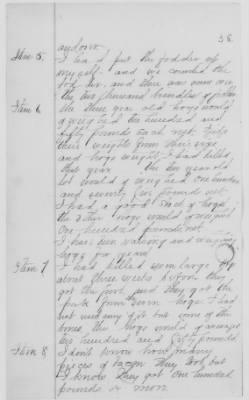 38.
and over.
Item 5. I
put the fodder up
myself and we counted the
fodder, and there was over
the six thousand bundles of fodder
Item 6 The three year old hogs would
of weighed two hundred and
fifty pounds each nett. I
their weights from their size
and hogs weight I had killed
that year the ten year old
lot would of weighed one hundred
and seventy five pounds nett.
I had a good stock of hogs,
the other hogs would of weighed
one hundred pounds nett.
I had been watching and weighing
hogs for years
Item 7 I had killed some large
about three weeks before they
got the pork, and they got the
pork from seven hogs. I had
not used any of it but some of the
bones. The hogs would of averaged
two hundred and fifty pounds
Item 8 I don't know how many
pieces of bacon they took, but
I know they got one hundred
pounds or more